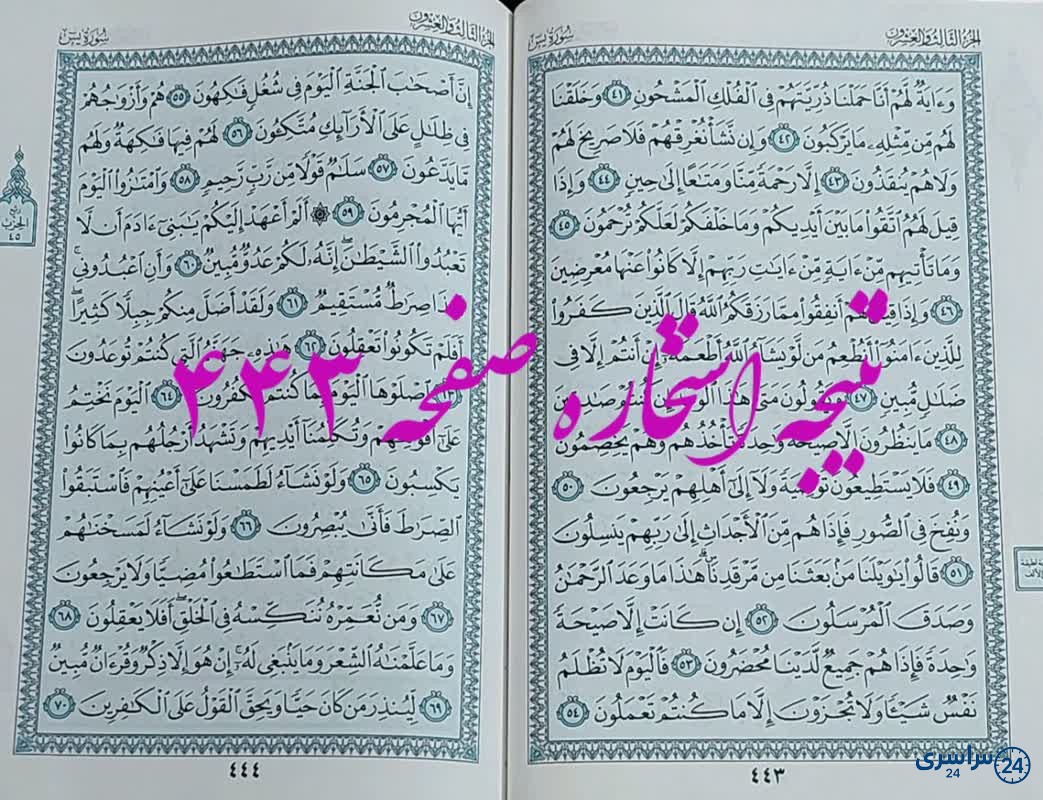 الجزء الثالث والعشرون
سورة يس
وَءَايَةٌ لَّهُمْ أَنَّا حَمَلْنَا ذُرِّيَّتَهُمْ فِي الْفُلْكِ الْمَشْحُونِ ٤١ وَخَلَقْنَا
لَهُم مِّن مِّثْلِهِ مَا يَرْكَبُونَ ٤٢ وَإِن نَّشَأْ نُغْرِقْهُمْ فَلَا صَرِيخَ لَهُمْ
وَلَا هُمْ يُنقَذُونَ ٤٣ إِلَّا رَحْمَةً مِّنَّا وَمَتَاعًا إِلَىٰ حِينٍ ٤٤ وَإِذَا
قِيلَ لَهُمُ اتَّقُوا مَا بَيْنَ أَيْدِيكُمْ وَمَا خَلْفَكُمْ لَعَلَّكُمْ تُرْحَمُونَ ٤٥
وَمَا تَأْتِيهِم مِّنْ ءَايَةٍ مِّنْ ءَايَاتِ رَبِّهِمْ إِلَّا كَانُوا عَنْهَا مُعْرِضِينَ
٤٦ وَإِذَا قِيلَ لَهُمْ أَنفِقُوا مِمَّا رَزَقَكُمُ اللَّهُ قَالَ الَّذِينَ كَفَرُوا
لِلَّذِينَ ءَامَنُوا أَنُطْعِمُ مَن لَّوْ يَشَاءُ اللَّهُ أَطْعَمَهُ إِنْ أَنتُمْ إِلَّا فِي
ضَلَالٍ مُّبِينٍ ٤٧ وَيَقُولُونَ مَتَىٰ هَٰذَا الْوَعْدُ إِن كُنتُمْ صَادِقِينَ
٤٨ مَا يَنظُرُونَ إِلَّا صَيْحَةً وَاحِدَةً تَأْخُذُهُمْ وَهُمْ يَخِصِّمُونَ
٤٩ فَلَا يَسْتَطِيعُونَ تَوْصِيَةً وَلَا إِلَىٰ أَهْلِهِمْ يَرْجِعُونَ ٥٠
وَنُفِخَ فِي الصُّورِ فَإِذَا هُم مِّنَ الْأَجْدَاثِ إِلَىٰ رَبِّهِمْ يَنسِلُونَ
٥١ قَالُوا يَا وَيْلَنَا مَن بَعَثَنَا مِن مَّرْقَدِنَا هَٰذَا مَا وَعَدَ الرَّحْمَٰنُ
وَصَدَقَ الْمُرْسَلُونَ ٥٢ إِن كَانَتْ إِلَّا صَيْحَةً
وَاحِدَةً فَإِذَا هُمْ جَمِيعٌ لَّدَيْنَا مُحْضَرُونَ ٥٣ فَالْيَوْمَ لَا تُظْلَمُ
نَفْسٌ شَيْئًا وَلَا تُجْزَوْنَ إِلَّا مَا كُنتُمْ تَعْمَلُونَ ٥٤
٤٤٣
الجزء الثالث والعشرون
سورة يس
إِنَّ أَصْحَابَ الْجَنَّةِ الْيَوْمَ فِي شُغُلٍ فَاكِهُونَ ٥٥ هُمْ وَأَزْوَاجُهُمْ
فِي ظِلَالٍ عَلَى الْأَرَائِكِ مُتَّكِئُونَ ٥٦ لَهُمْ فِيهَا فَاكِهَةٌ وَلَهُم
مَّا يَدَّعُونَ ٥٧ سَلَامٌ قَوْلًا مِّن رَّبٍّ رَّحِيمٍ ٥٨ وَامْتَازُوا الْيَوْمَ
أَيُّهَا الْمُجْرِمُونَ ٥٩ ۞ أَلَمْ أَعْهَدْ إِلَيْكُمْ يَا بَنِي ءَادَمَ أَن لَّا
تَعْبُدُوا الشَّيْطَانَ إِنَّهُ لَكُمْ عَدُوٌّ مُّبِينٌ ٦٠ وَأَنِ اعْبُدُونِي
هَٰذَا صِرَاطٌ مُّسْتَقِيمٌ ٦١ وَلَقَدْ أَضَلَّ مِنكُمْ جِبِلًّا كَثِيرًا
أَفَلَمْ تَكُونُوا تَعْقِلُونَ ٦٢ هَٰذِهِ جَهَنَّمُ الَّتِي كُنتُمْ تُوعَدُونَ
٦٣ اصْلَوْهَا الْيَوْمَ بِمَا كُنتُمْ تَكْفُرُونَ ٦٤ الْيَوْمَ نَخْتِمُ
عَلَىٰ أَفْوَاهِهِمْ وَتُكَلِّمُنَا أَيْدِيهِمْ وَتَشْهَدُ أَرْجُلُهُم بِمَا كَانُوا
يَكْسِبُونَ ٦٥ وَلَوْ نَشَاءُ لَطَمَسْنَا عَلَىٰ أَعْيُنِهِمْ فَاسْتَبَقُوا
الصِّرَاطَ فَأَنَّىٰ يُبْصِرُونَ ٦٦ وَلَوْ نَشَاءُ لَمَسَخْنَاهُمْ
عَلَىٰ مَكَانَتِهِمْ فَمَا اسْتَطَاعُوا مُضِيًّا وَلَا يَرْجِعُونَ
٦٧ وَمَن نُّعَمِّرْهُ نُنَكِّسْهُ فِي الْخَلْقِ أَفَلَا يَعْقِلُونَ ٦٨
وَمَا عَلَّمْنَاهُ الشِّعْرَ وَمَا يَنبَغِي لَهُ إِنْ هُوَ إِلَّا ذِكْرٌ وَقُرْءَانٌ مُّبِينٌ
٦٩ لِّيُنذِرَ مَن كَانَ حَيًّا وَيَحِقَّ الْقَوْلُ عَلَى الْكَافِرِينَ ٧٠
٤٤٤
الحزب
٤٥
نتیجه استخاره صفحه ۴۴۳
سراسری 24
24